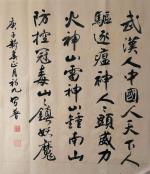 武汉人中國人天下人
驅逐瘟神人頭威力
火神山雷神山鍾南山
防控冠毒山山鎮妖魔
庚子新春正月初九